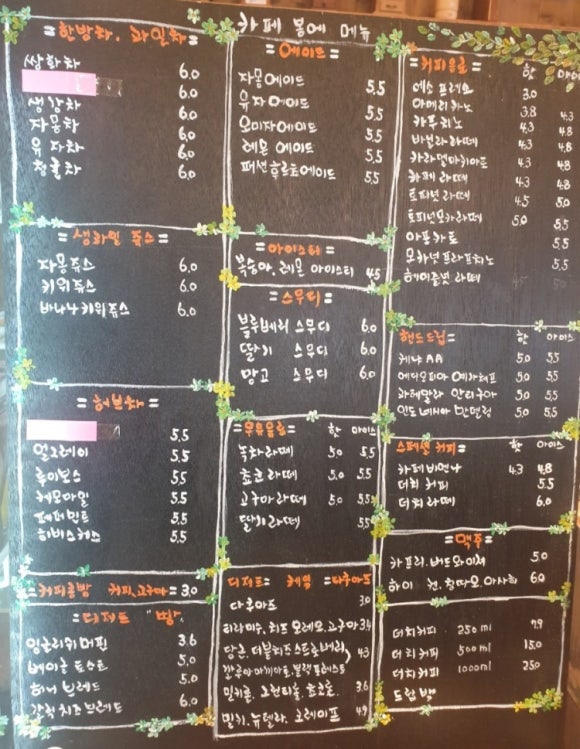 카페 봄에 메뉴
=한방차, 과일차=
쌍화차 6.0
6.0
생강차 6.0
자몽차 6.0
유자차 6.0
청귤차 6.0
=생과일 쥬스=
자몽쥬스 6.0
키위쥬스 6.0
바나나키위쥬스 6.0
=허브차=
5.5
얼그레이 5.5
루이보스 5.5
케모마일 5.5
페퍼민트 5.5
히비스커스 5.5
=커피콩빵 커피,고구마=3.0
=디저트 "빵"
잉글리쉬머핀 3.6
베이글 토스트 5.0
허니 브레드 5.0
갈릭치즈브레드 6.0
=에이드=
자몽에이드 5.5
유자에이드 5.5
오미자에이드 5.5
레몬에이드 5.5
패션후르츠에이드 5.5
=아이스티=
복숭아, 레몬 아이스티 4.5
=스무디=
블루베리 스무디 6.0
딸기 스무디 6.0
망고 스무디 6.0
=우유음료= 핫 아이스
녹차라떼 5.0 5.5
초코라떼 5.0 5.5
고구마라떼 5.0 5.5
딸기라떼 5.5
디저트= 케잌 =다쿠아즈
다쿠아즈 3.0
티라미수, 치즈 오레오,고구마 3.4
당근, 더블치즈스트로베리 4.3
깔루아마끼아또,블랙포레스트
밀키롤. 초코롤. 3.6
밀키,뉴텔라, 크레이프 4.9
=커피음료= 핫 아이스
에소프레소 3.0
아메리카노 3.8 4.3
카푸치노 4.3 4.8
바닐라라떼 4.3 4.8
카라멜마키아또 4.3 4.8
카페라떼 4.3 4.8
토피넛라떼 4.5 5.0
토피넛모카라떼 5.0 5.5
아포카토 5.5
모카넛프라프치노 5.5
헤이즐넛라떼 4.5 5.0
핸드드립= 핫 아이스
케냐AA 5.0 5.5
에디오피아 예가체프 5.0 5.5
과테말라 안티구아 5.0 5.5
인도네시아 만델링 5.0 5.5
스페셜 커피= 핫 아이스
카페비엔나 4.3 4.8
더치커피 5.5
더치라떼 6.0
=맥주=
카프리.버드와이저 5.0
하이 켄.칭따오.아사히 6.0
더치커피 250ml 7.9
더치커피 500ml 15.0
더치커피 1000ml 25.0
드립백